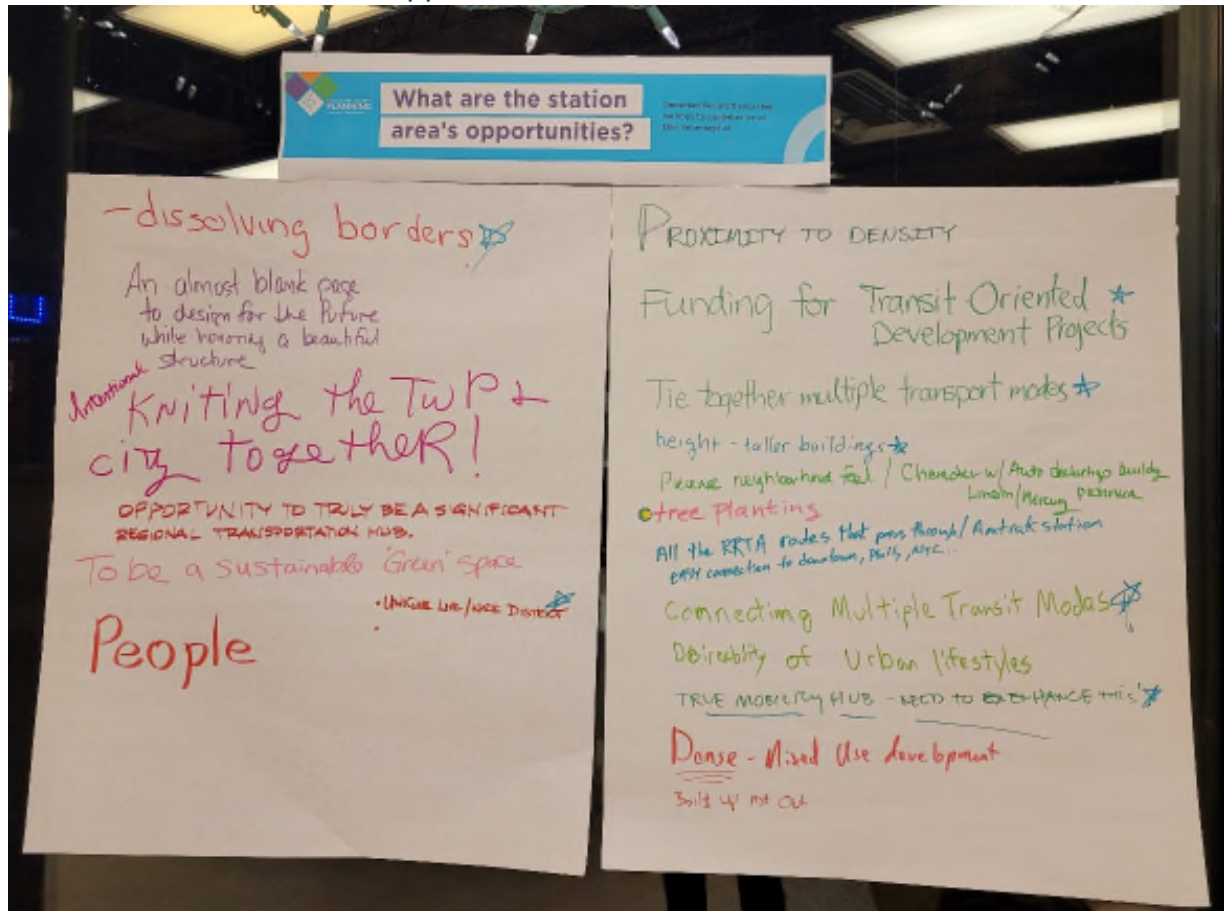 PLANNING
What are the station
area's opportunities?
-dissolving borders
An almost blank page
to design for the future
while honoring a beautiful
structure
Intentional
KNiTiNg the TWP &
city togetheR!
OPPORTUNITY TO TRULY BE A SIGNIFICANT
REGIONAL TRANSPORTATION HUB.
To be a sustainable 'Green' space
• UNIQUE LIVE/WORK DISTRICT
People
PROXIMITY TO DENSITY
Funding for Transit Oriented
Development Projects
Tie together multiple transport modes
height - taller buildings
neighborhood feel / Character w/ Auto
Lincoln/Mercury
tree planting
All the RRTA routes that pass through/Amtrak station
easy connection to downtown, Philly, NYC...
Connecting Multiple Transit Modes
Desireablity of Urban lifestyles
TRUE MOBILITY HUB - NEED TO ENHANCE this
Dense - Mixed Use development
Build up not out